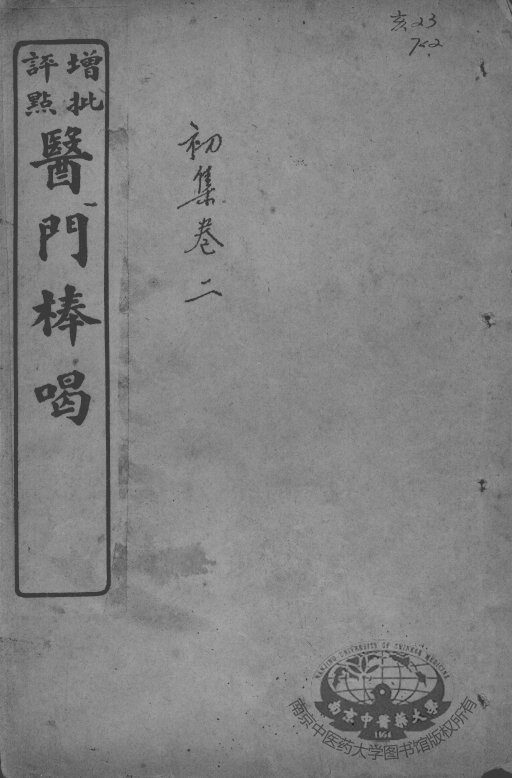 亥23
752
增批
評點
醫門棒喝
初集卷二
NANJING UNIVERSITY OF CHINESE MEDICINE
南京中醫藥大學
1954
南京中医药大学图书馆版权所有